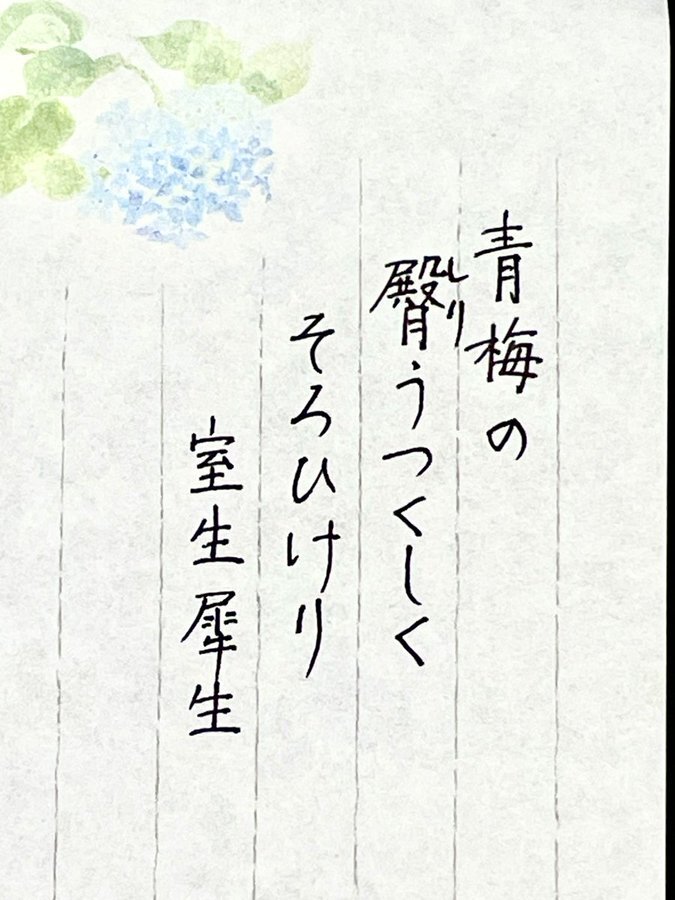 青梅の
臀うつくしく
しり
そろひけり
室生犀生